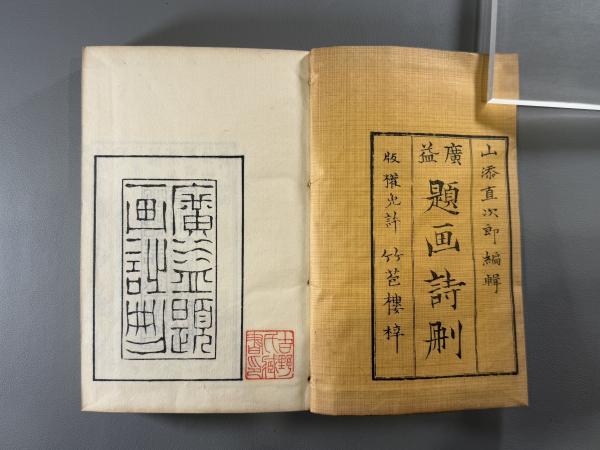 山添直次郎編輯
廣益
題画詩刪
版權免許 竹苞樓梓
廣益題
画詩刪
吉野
氏藏
書印